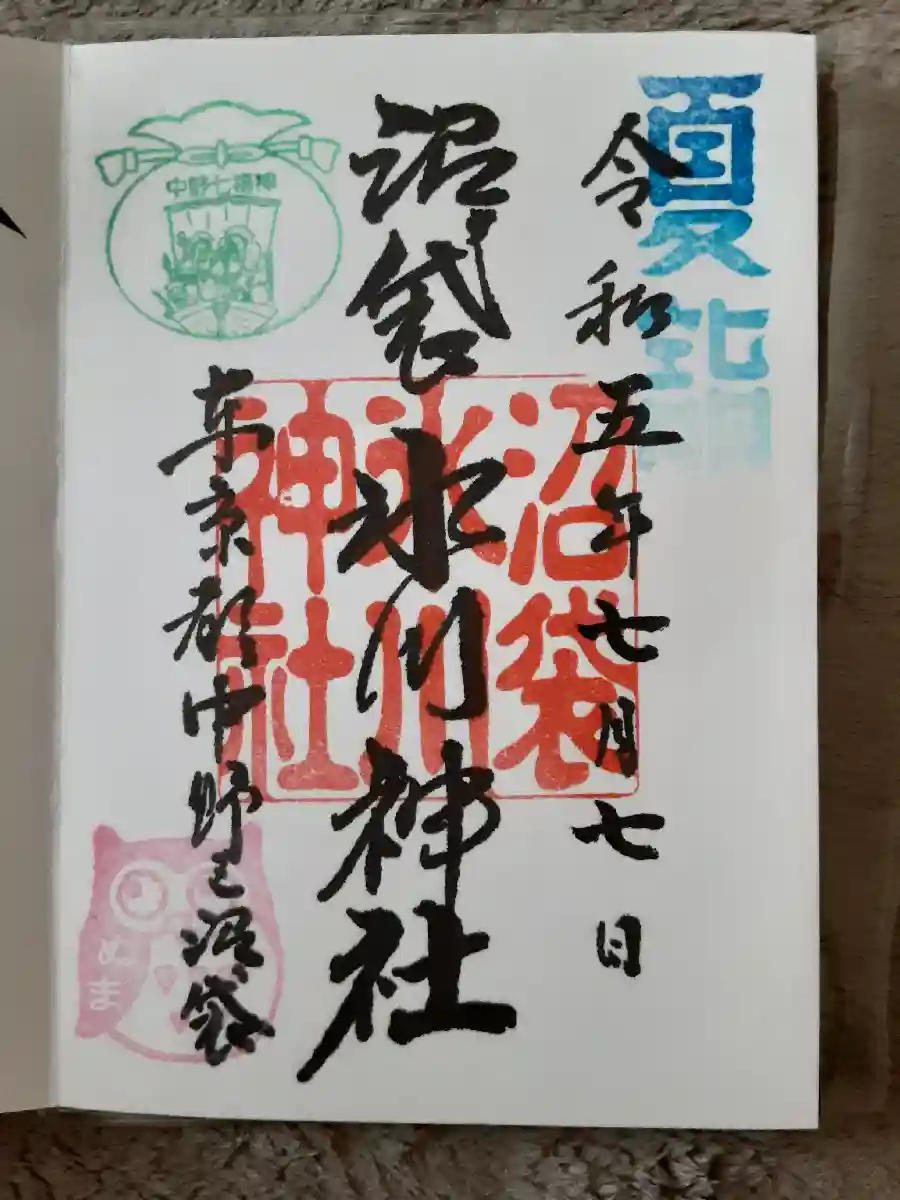 夏詣
令和五年七月七日
沼袋氷川神社
沼袋
氷川
神社
中野七福神
東京都中野区沼袋
ぬま